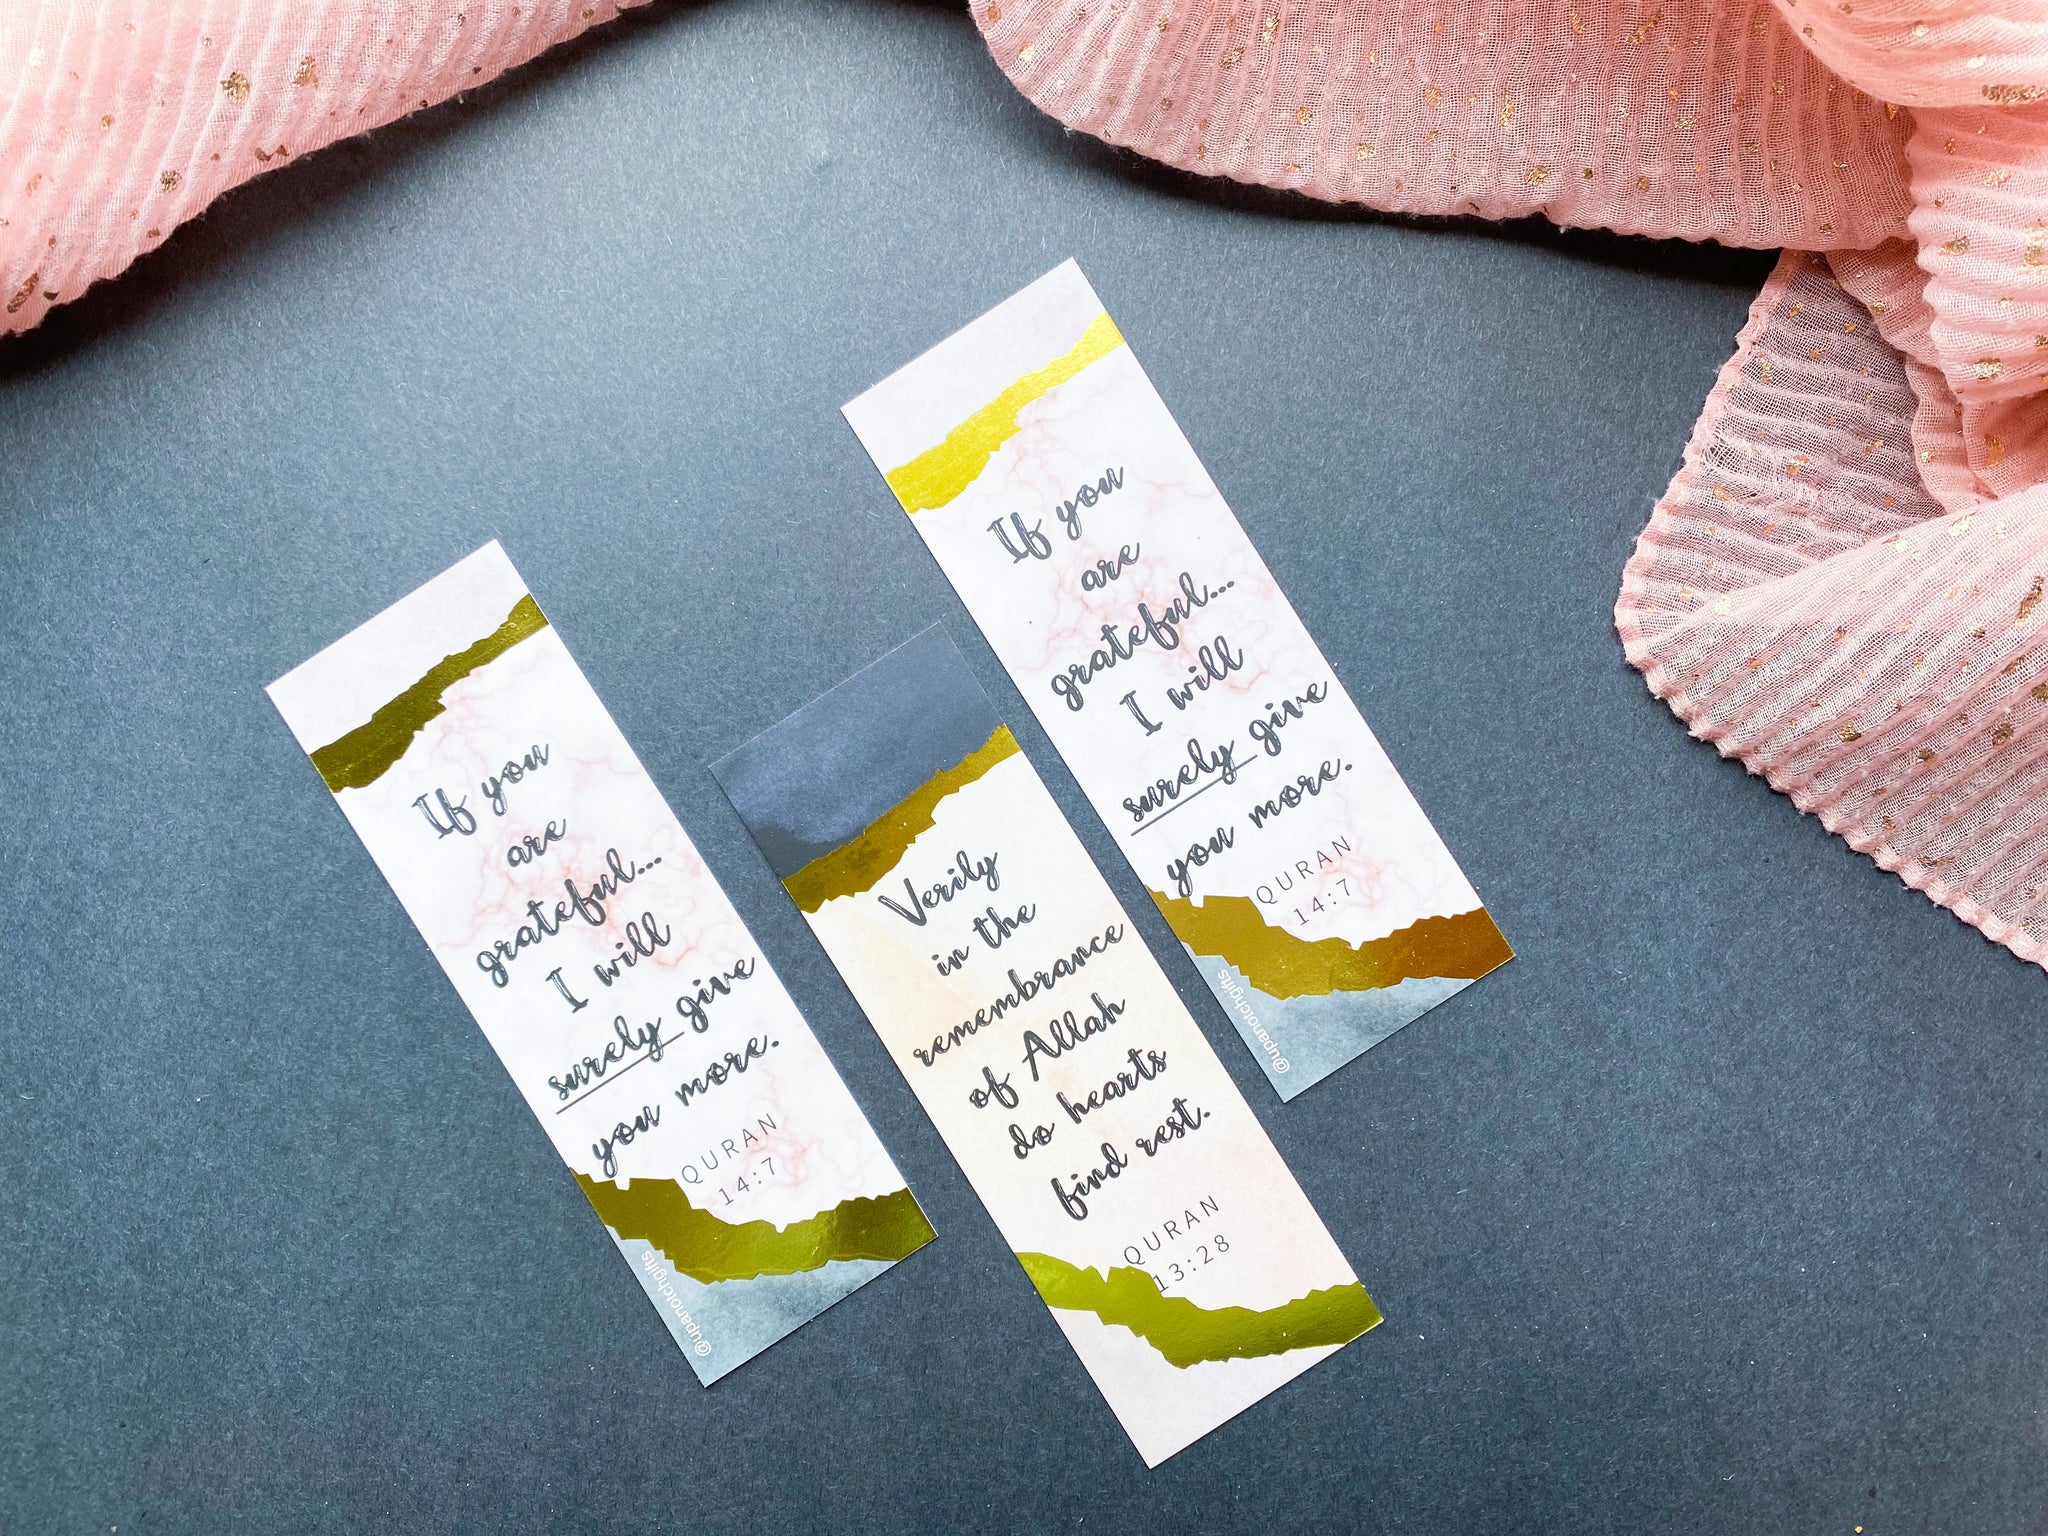 If you
are
grateful...
I will
surely give
you more.
QURAN
14:7
@upanotchgifts
Verily
in the
remembrance
of Allah
do hearts
find rest.
QURAN
13:28
If you
are
grateful...
I will
surely give
you more.
QURAN
14:7
@upanotchgifts